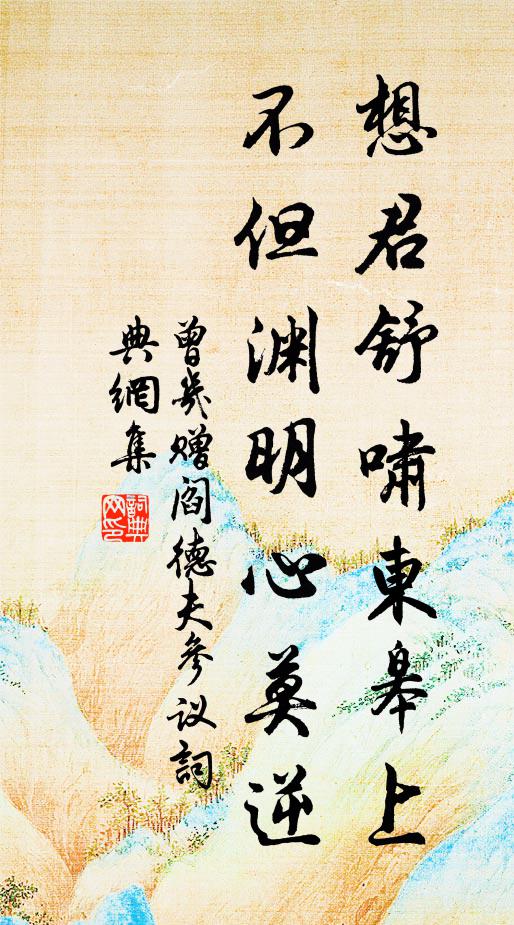 想君舒啸東皋上
不但渊明心莫逆
曾幾赠阎德夫参议詞
典網集
詞典網印